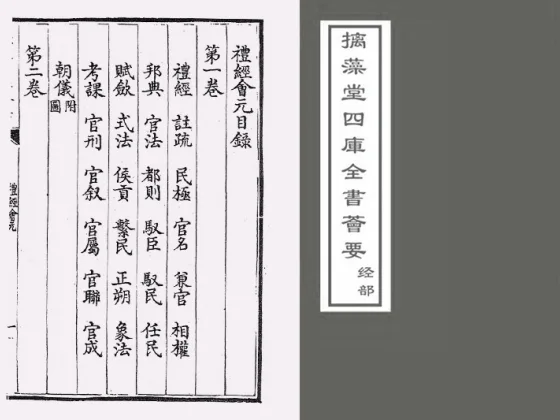 摛藻堂四庫全書薈要
经部
禮經會元目録
第一卷
禮經 註疏 民極 官名 兼官 相權
邦典 官法 都則 馭臣 馭民 任民
賦斂 式法 侯貢 繫民 正朔 象法
考課 官刑 官叙 官屬 官聯 官成
朝儀附圖
第二卷
禮經會元
一